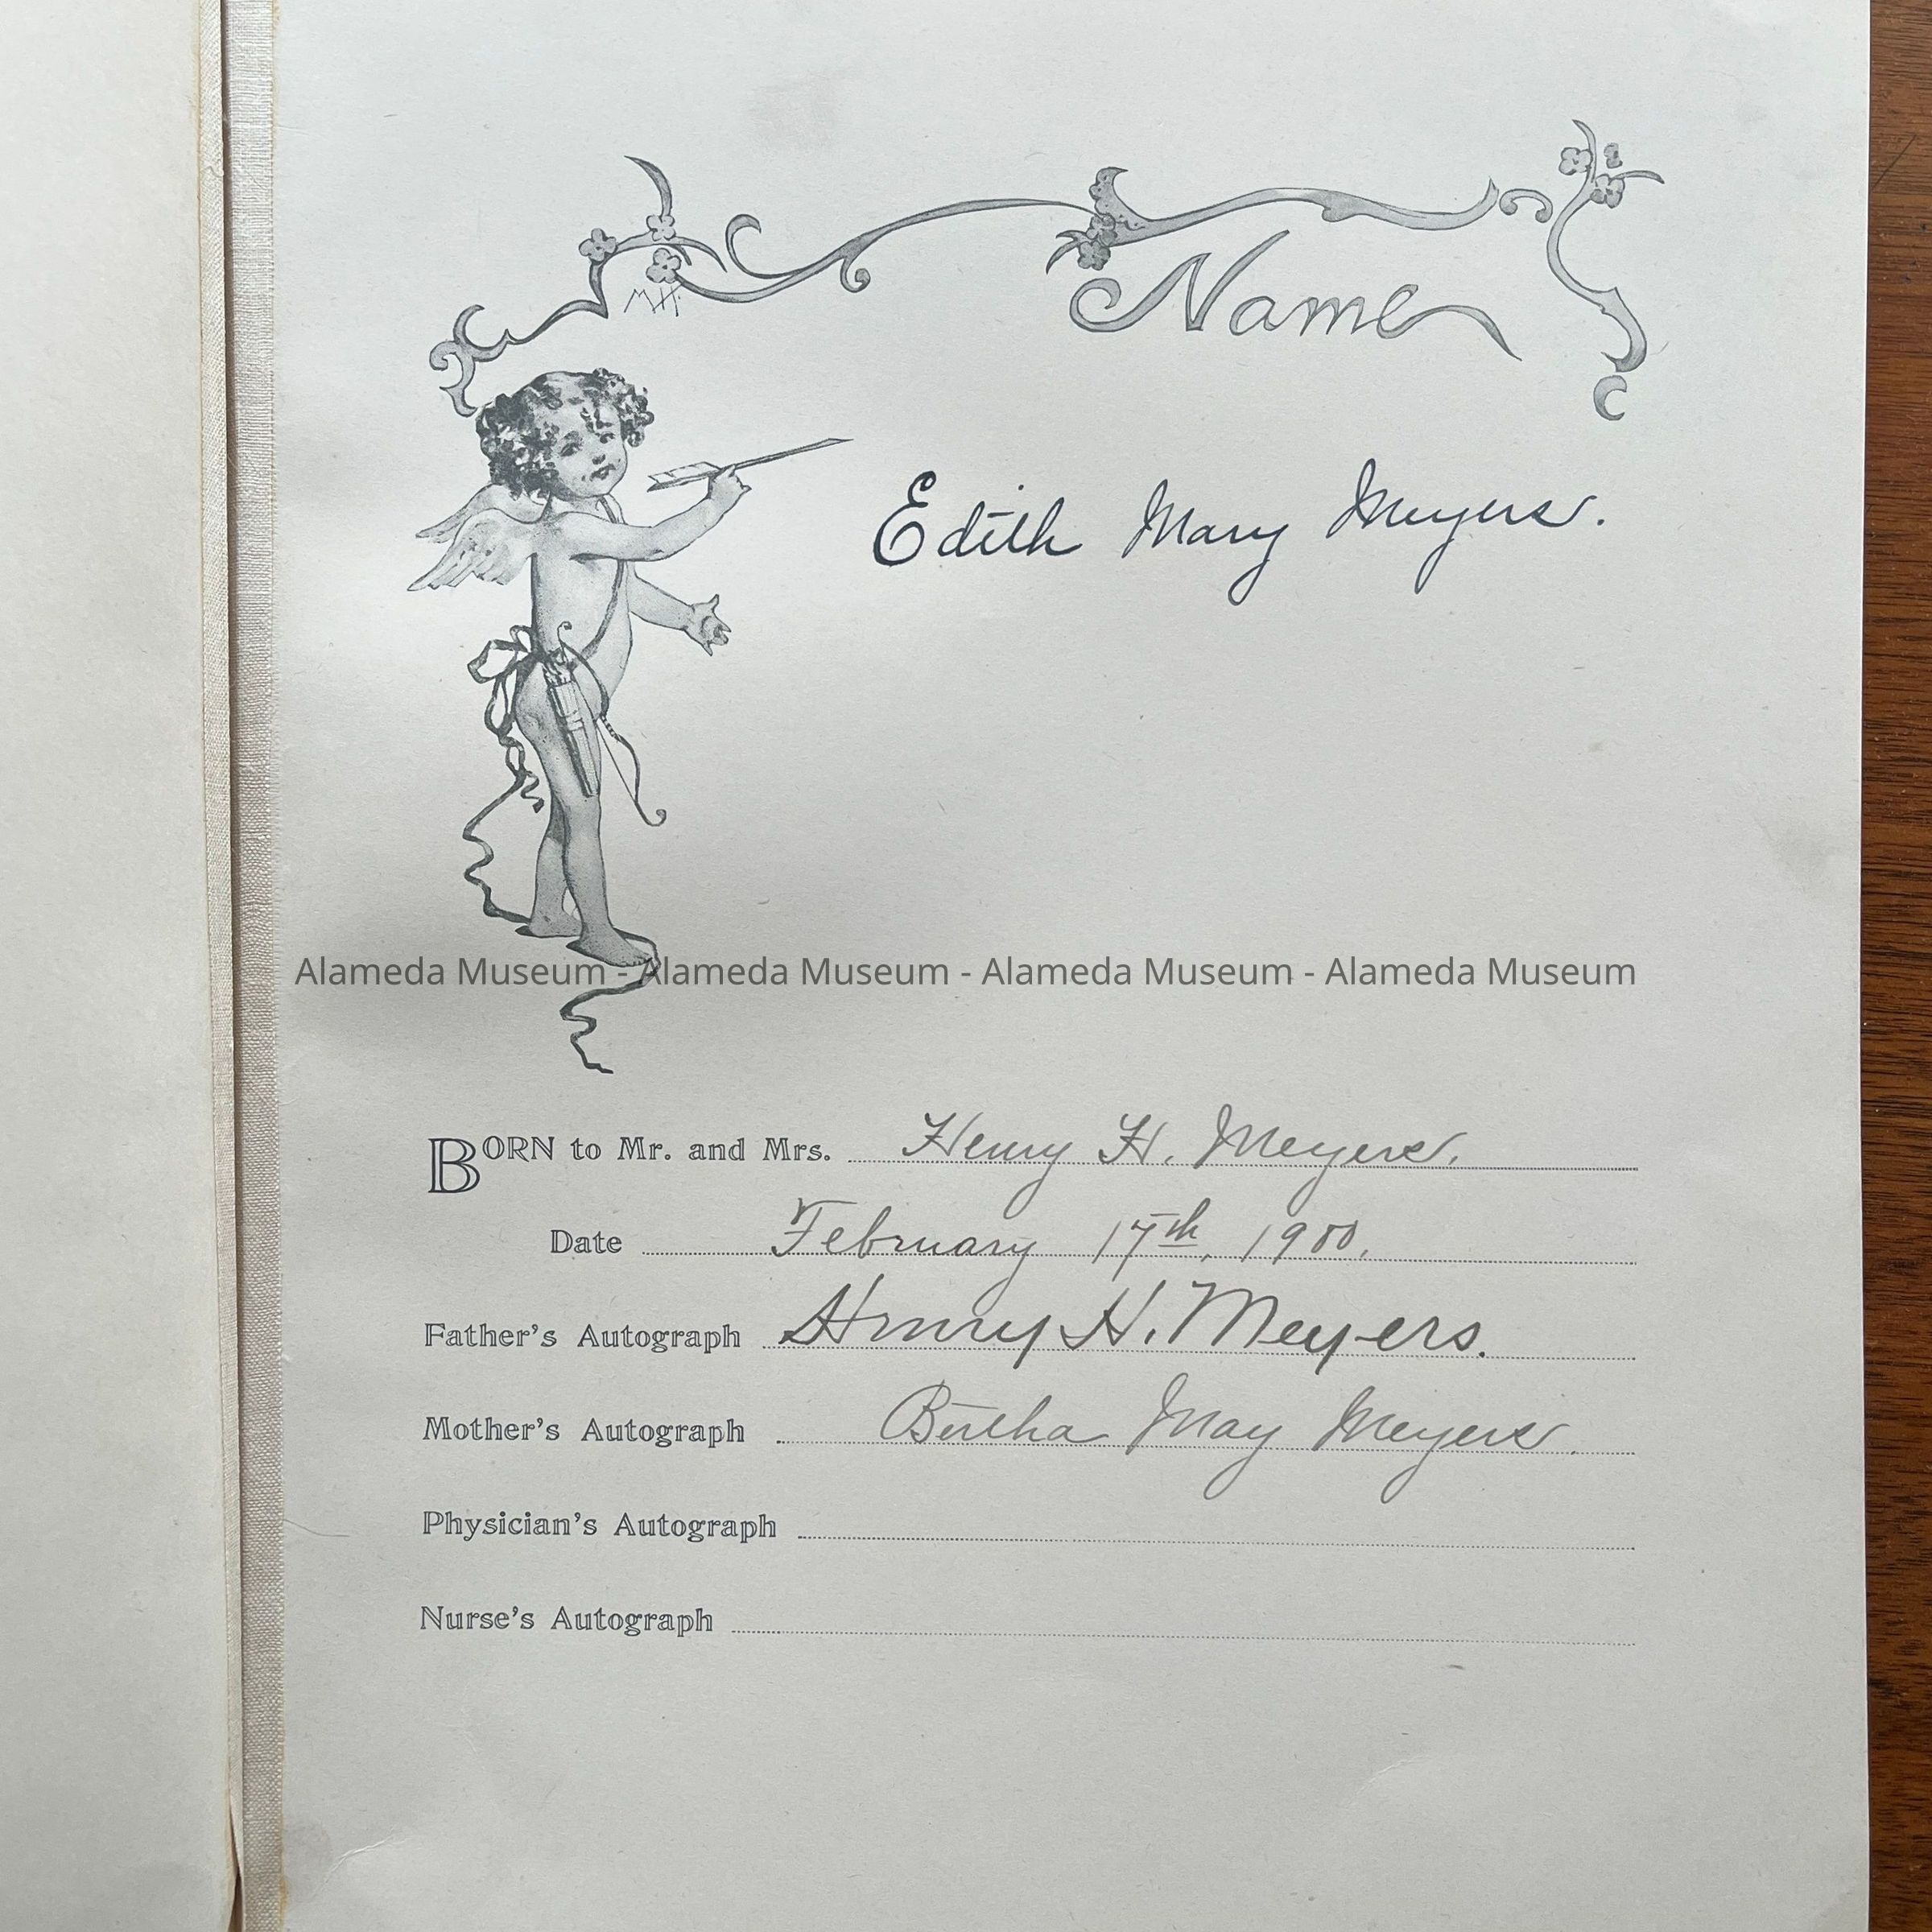 MH.
Name
Edith Mary Meyers.
Alameda Museum - Alameda Museum - Alameda Museum - Alameda Museum
BORN to Mr. and Mrs. Henry H. Meyers.
Date February 17th, 1900.
Father's Autograph Henry H. Meyers.
Mother's Autograph Bertha May Meyers.
Physician's Autograph
Nurse's Autograph